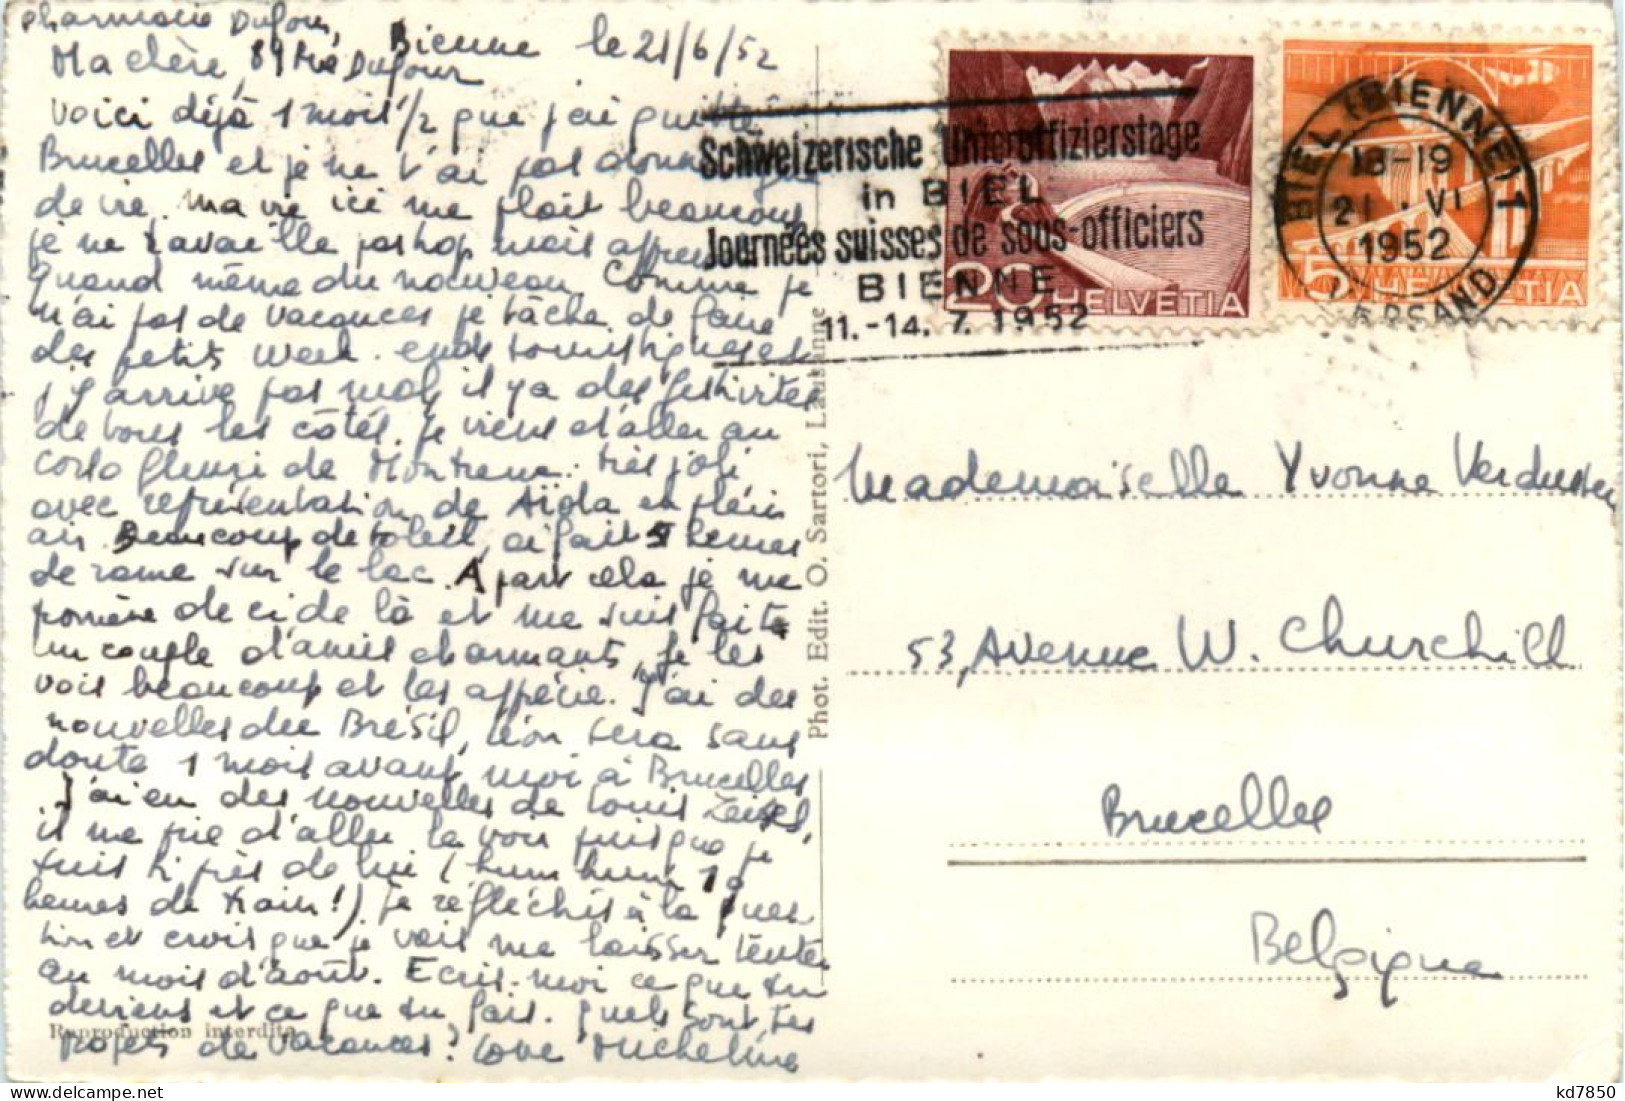 Pharmacie Dufour,
89 Rue Dufour
Bienne le 21/6/52
Ma chère,
Voici déjà 1 mois 1/2 que j'ai quitté
Bruxelles et je ne t'ai pas donné signe
de vie. Ma vie ici me plait beaucoup
je ne travaille pas trop mais apprend
quand même du nouveau. Comme je
n'ai pas de vacances je tâche de faire
des petits week-ends touristiques et
j'y arrive pas mal, il y a des festivités
de tous les côtés. Je viens d'aller au
corso fleuri de Montreux. très joli
avec représentation de Aïda en plein
air. Beaucoup de soleil, ai fait 5 heures
de rame sur le lac. A part cela je me
promène de ci de là et me suis faite
un couple d'amis charmants, je les
vois beaucoup et les apprécie. J'ai des
nouvelles du Brésil, Léon sera sans
doute 1 mois avant moi à Bruxelles
J'ai eu des nouvelles de Louis
il me prie d'aller le voir puisque je
suis si près de lui (hum hum 19
heures de train!) je réfléchis à la ques-
tion et crois que je vais me laisser tenter
au mois d'août. Ecris-moi ce que tu
deviens et ce que tu fais. quels sont tes
projets de vacances? Love Micheline
Reproduction interdite
Phot. Edit. O. Sartori, Lausanne
Schweizerische Unteroffizierstage
in BIEL
Journées suisses de sous-officiers
BIENNE
11.-14. 7. 1952
20 HELVETIA
5 HELVETIA
BIEL (BIENNE) 1
18-19
21.VI
1952
VERSAND
Mademoiselle Yvonne
53, Avenue W. Churchill
Bruxelles
Belgique
kd7850